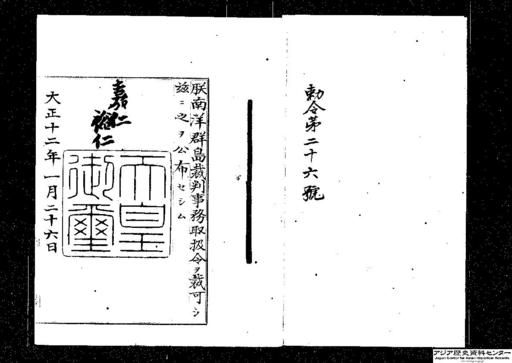 勅令第二十六號
朕南洋群島裁判事務取扱令ヲ裁可シ
玆ニ之ヲ公布セシム
嘉仁
裕仁
天皇
御璽
大正十二年一月二十六日
アジア歴史資料センター
Japan Center for Asian Historical Records